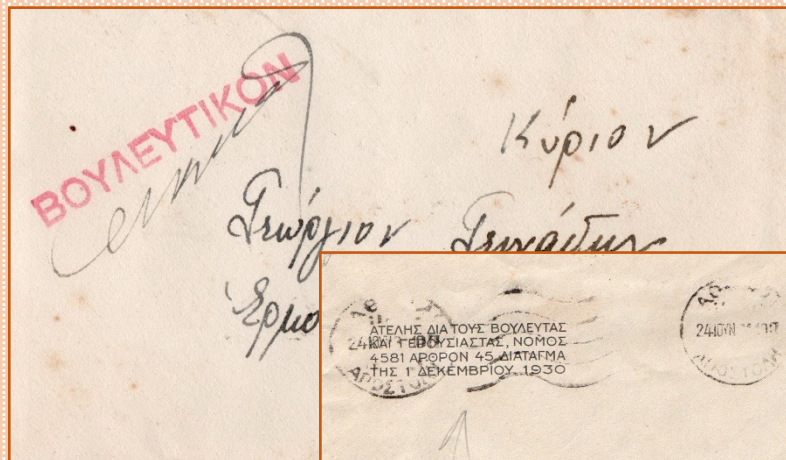 ΒΟΥΛΕΥΤΙΚΟΝ
Κύριον
Γεώργιον Γεννάδην
ΑΤΕΛΗΣ ΔΙΑ ΤΟΥΣ ΒΟΥΛΕΥΤΑΣ
ΚΑΙ ΓΕΡΟΥΣΙΑΣΤΑΣ, ΝΟΜΟΣ
4581 ΑΡΘΡΟΝ 45 ΔΙΑΤΑΓΜΑ
ΤΗΣ 1 ΔΕΚΕΜΒΡΙΟΥ 1930
ΑΠΟΣΤΟΛΗ
24 ΙΟΥΝ
ΑΠΟΣΤΟΛΗ